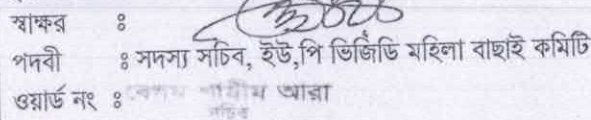 স্বাক্ষর ঃ
পদবী ঃ সদস্য সচিব, ইউ,পি ভিজিডি মহিলা বাছাই কমিটি
ওয়ার্ড নং ঃ আরা
সচিব